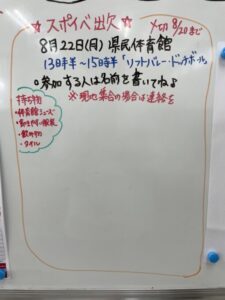 ☆スポイベ出欠☆
〆切 8/20まで
8月22日(月) 県民体育館
13時半〜15時半「ソフトバレー・ドッヂボール」
○参加する人は名前を書いてね♪
※現地集合の場合は連絡を
持ち物
・体育館シューズ
・動きやすい服装
・飲み物
・タオル